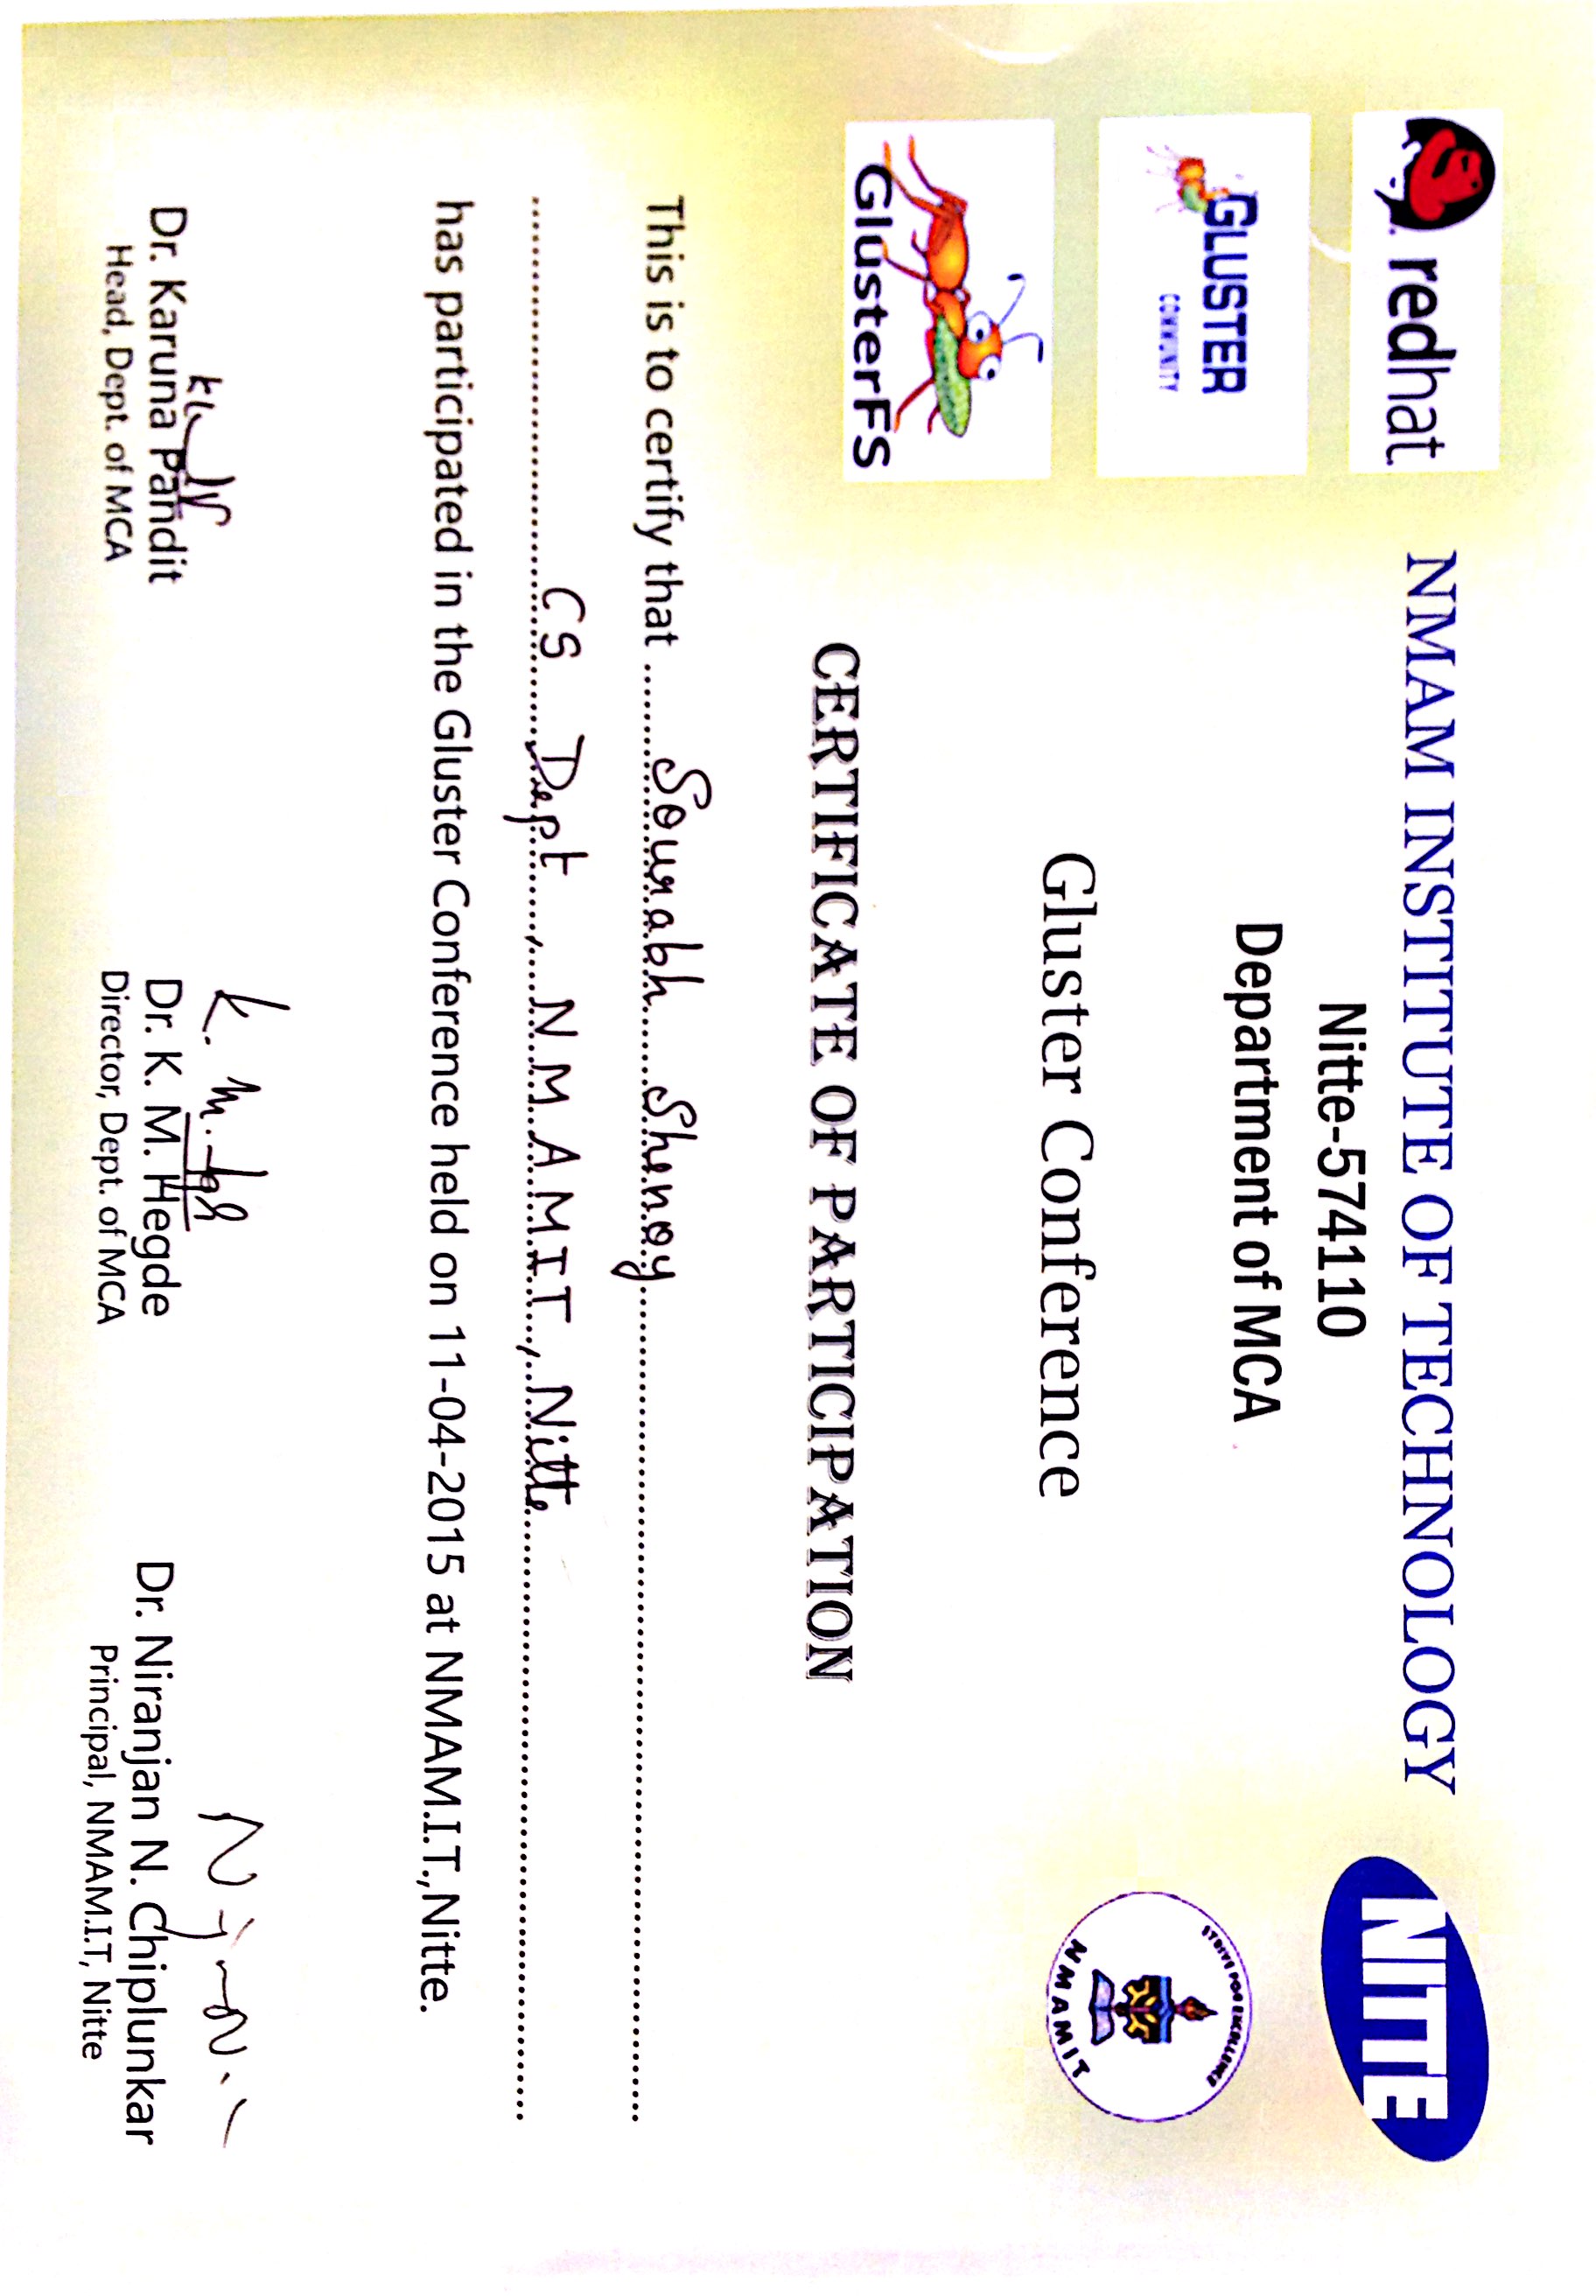 redhat.
NMAM INSTITUTE OF TECHNOLOGY
NITTE
Nitte-574110
Department of MCA
GLUSTER
COMMUNITY
STRIVE FOR EXCELLENCE
NMAMIT
Gluster Conference
GlusterFS
CERTIFICATE OF PARTICIPATION
This is to certify that Sourabh Shenoy
CS Dept, NMAMIT, Nitte
has participated in the Gluster Conference held on 11-04-2015 at NMAM.I.T.,Nitte.
K. M.
Dr. Karuna Pandit
Head, Dept. of MCA
Dr. K. M. Hegde
Director, Dept. of MCA
Dr. Niranjan N. Chiplunkar
Principal, NMAM.I.T, Nitte